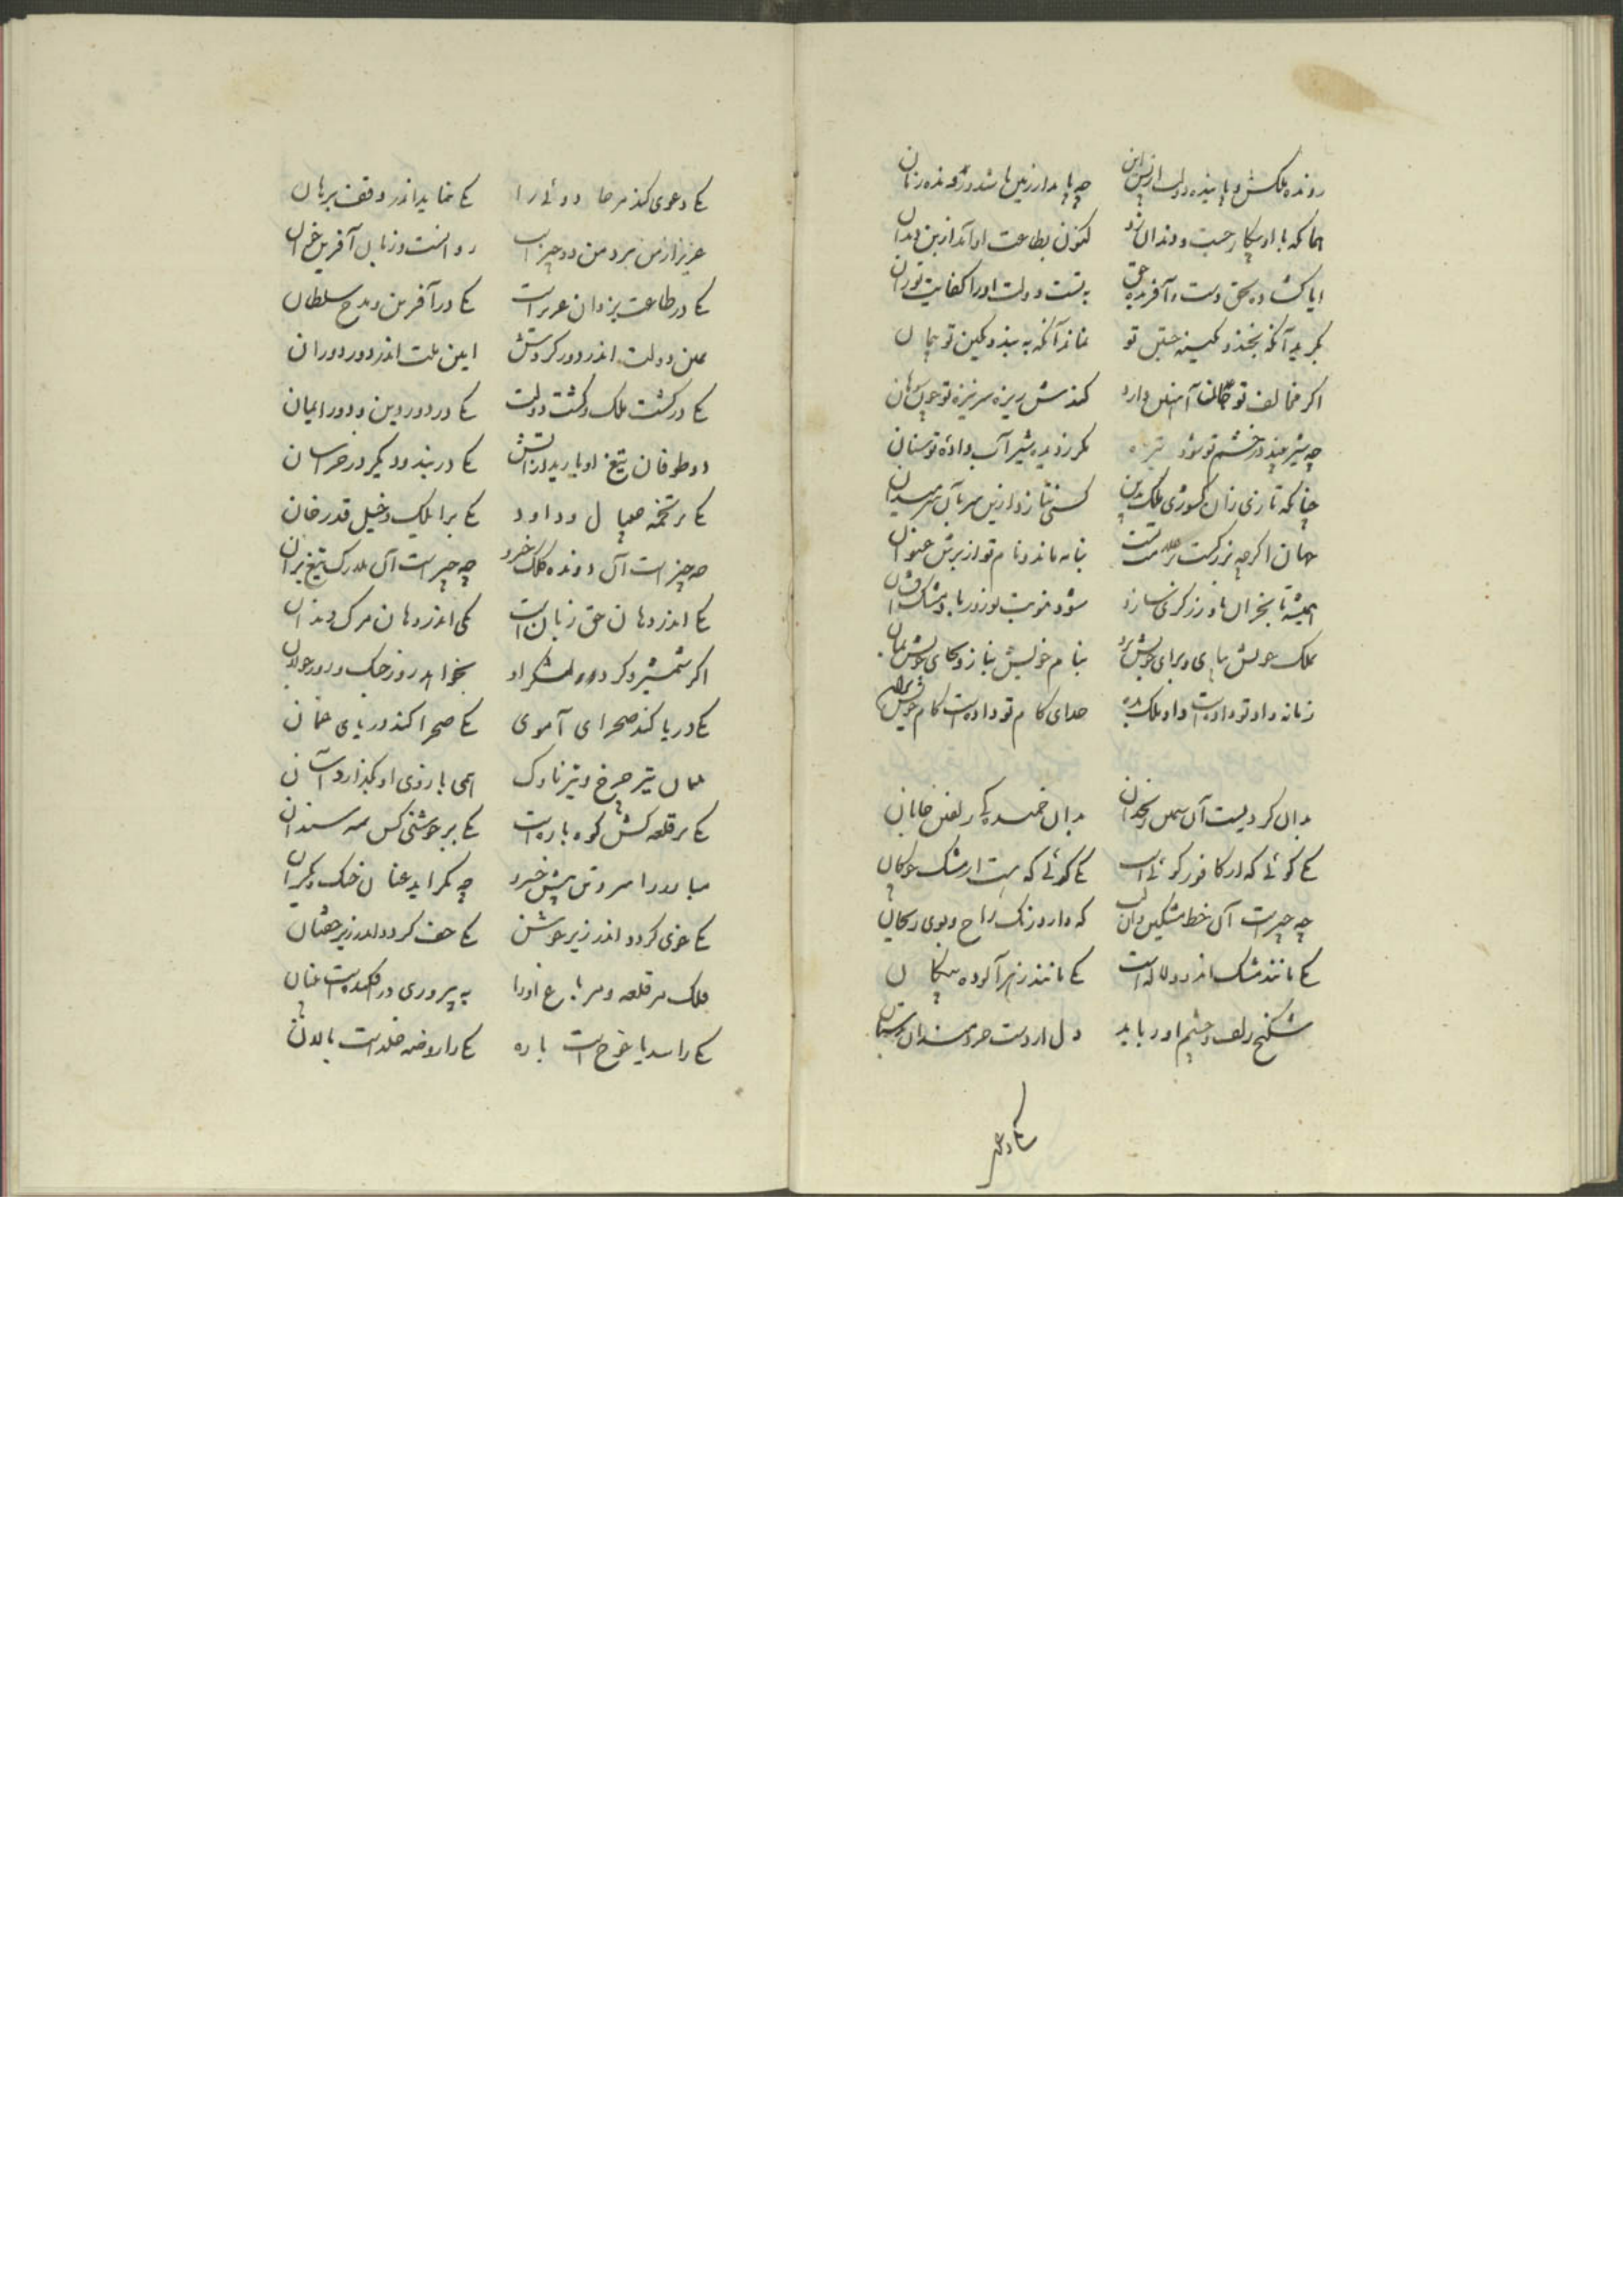 رونده ملکش و پاینده دولت
چه پایدار زمین باشد و رونده زمان
هما که با او پیکار جست و دندان زد
کنون بطاعت او آمد از بن دندان
ایا گشاده بحق دست و آفریده حق
به تست دولت او را کفایت توران
بگرید آنکه بخندد بکینه جستن تو
نماند آنکه به بندد بکین تو پیمان
اگر مخالف تو جان آهنین دارد
کندش ریزه سر نیزه تو چون سوهان
چه شیر بیند در خشم تو شود تیره
مگر ز دیده شیر آب داده تو سنان
چنانکه تازی زان کشوری بملک بدین
کسی نتازد ازین سر بآن سر میدان
جهان اگر چه بزرگست
بنامه ماند و نام تو از برش عنوان
همیشه تا بخزان باد زرگری سازد
شود بنوبت نوروز باد مشک افشان
بملک خویش بپای و برای خویش برو
بنام خویش بناز و بجای خویش بمان
زمانه داد تو داده است داد ملک بده
خدای کام تو داده است کام خویش بران
بدان گردیست آن سیمین زنخدان
بدان خمیدگی زلفین جانان
یکی گوئی که از کافور گوئی است
یکی گوئی که هست از مشک چوگان
چه چیز است آن خط مشکین و آن لب
که دارد رنگ راح و بوی ریحان
یکی مانند مشک اندوده لاله است
یکی مانند زهر آلوده پیکان
شکنج زلف و چشم او رباید
دل از دست خردمندان
یکی دعوی
یکی دعوی کند مر جادوئی را
یکی نماید اندر وقت برهان
عزیز از من برد من دو چیز است
روانست و زبان آفرین خوان
یکی در طاعت یزدان عزیز است
یکی در آفرین و مدح سلطان
یمین دولت اندر دور گردش
امین ملت اندر دور دوران
یکی در گشت ملک و گشت دولت
یکی در دور دین و دور ایمان
دو طوفان تیغ او بارید از آتش
یکی در هند و دیگر در خراسان
یکی بر تخمه جیپال و داود
یکی بر ایلک و خیل قدرخان
چه چیز است آن رونده کلک خسرو
چه چیز است آن بلارک تیغ بران
یکی اندر دهان حق زبان است
یکی اندر دهان مرگ دندان
اگر شمشیر و گرد لشکر او
بخواهد روز جنگ و روز جولان
یکی دریا کند صحرای آموی
یکی صحرا کند دریای عمان
همان تیر چرخ و تیر ناوک
همی با روزی او بگذارد آسان
یکی بر قلعه کش کوه باره است
یکی بر جوشنی کش سندان
مبارز را سر و تن پیش خسرو
چه بگراید عنان خنگ و یکران
یکی خوی گردد اندر زیر جوشن
یکی خف گردد اندر زیر خفتان
ملک مر قلعه و مر باغ او را
به پیروزی درافکنده است بنیان
یکی را سد یأجوج است باره
یکی را روضه خلد است بالان